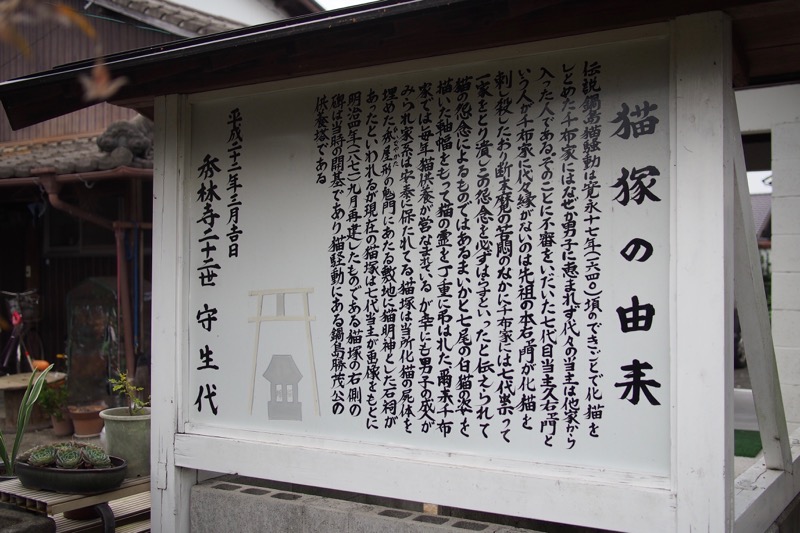 猫塚の由来
伝説鍋島猫騒動は寛永十七年(一六四〇)頃のできごとで化猫を
しとめた千布家にはなぜか男子に恵まれず代々の当主は他家から
入った人である。そのことに不審をいだいた七代目当主久右ヱ門と
いう人が千布家に代々縁がないのは先祖の本右ヱ門が化猫を
刺し殺したおり断末魔の苦悶のなかに千布家には七代祟って
一家をとり潰しこの怨念を必ずはらすといったと伝えられて
猫の怨念によるものではあるまいかと七尾の白猫の姿を
描いた軸幅をもって猫の霊を丁重に弔はれた、爾来千布
家では毎年猫供養が営なまれているが幸にも男子の成が
みられ家系は安泰に保たれてる猫塚は当所化猫の屍体を
埋めた赤屋形の鬼門にあたる敷地に猫明神とした石祠が
あったといわれるが現在の猫塚は七代当主が画像をもとに
明治四年(一八七一)九月再建したものである猫塚の右側の
碑は当時の開基であり猫騒動にある鍋島勝茂公の
供養塔である
平成二十二年三月吉日
秀林寺二十二世 守生代